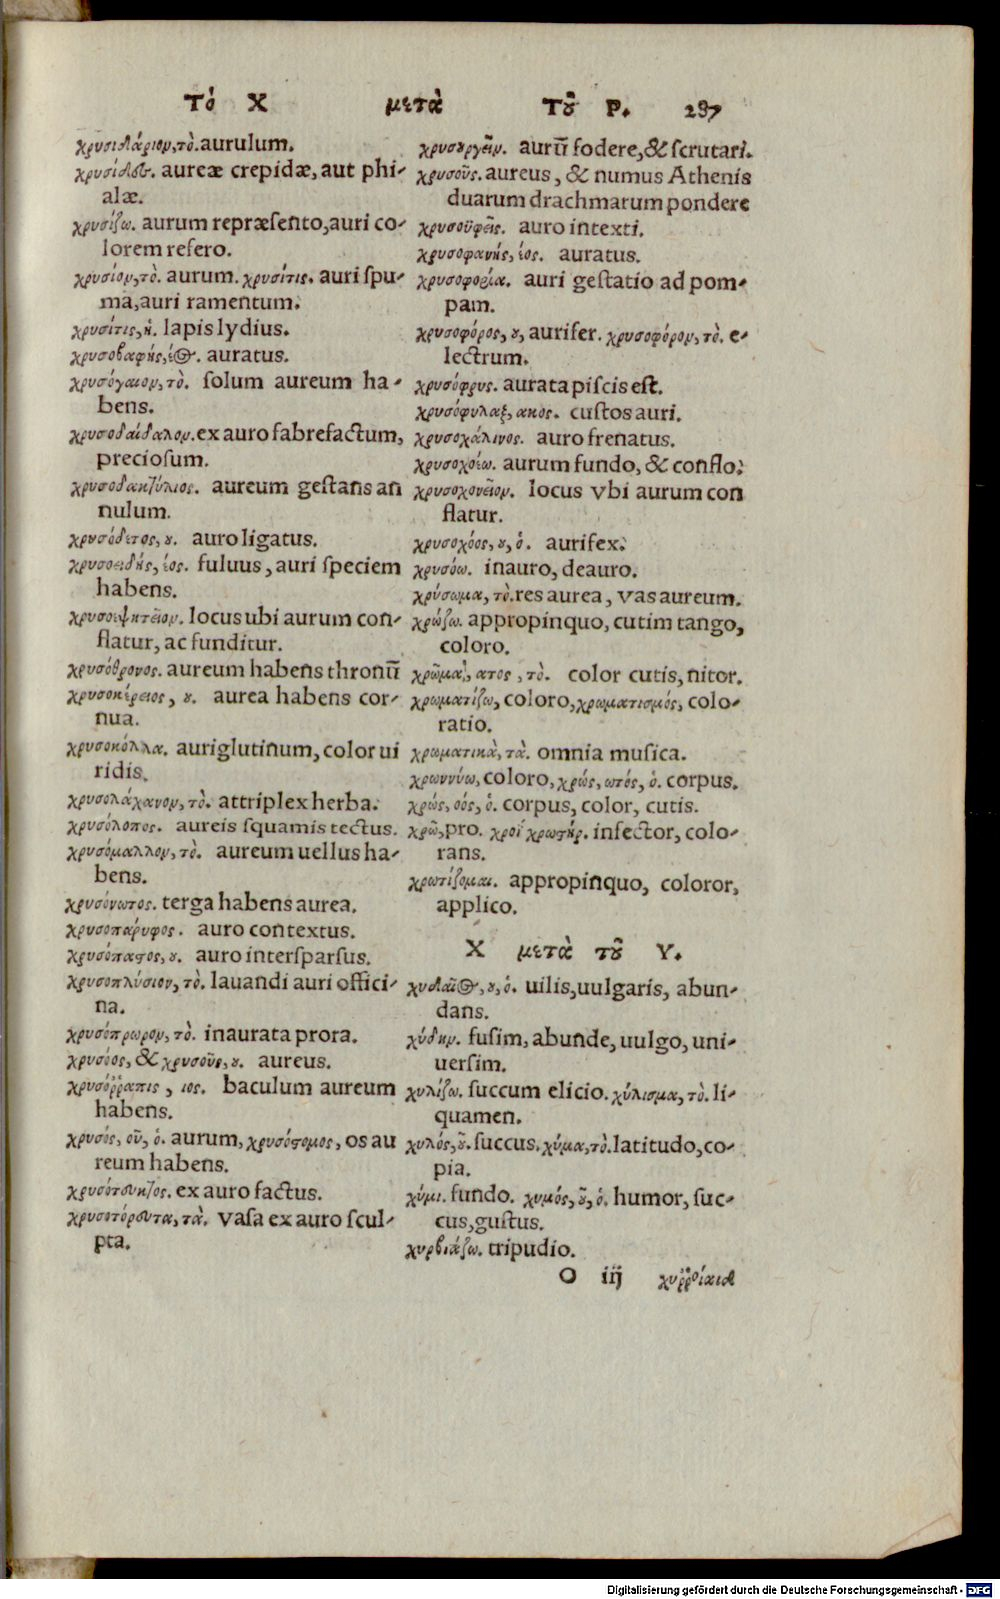 Τὸ Χ μετὰ Τοῦ Ρ. 287
χρυσιδάριον, τὸ. aurulum.
χρυσίδες. aureæ crepidæ, aut phi-
alæ.
χρυσίζω. aurum repræsento, auri co-
lorem refero.
χρυσίον, τὸ. aurum. χρυσίτις. auri spu-
ma, auri ramentum.
χρυσίτις, ἡ. lapis lydius.
χρυσοβαφὴς, έος. auratus.
χρυσόγαιον, τὸ. solum aureum ha-
bens.
χρυσοδαίδαλον. ex auro fabrefactum,
preciosum.
χρυσοδακτύλιος. aureum gestans an
nulum.
χρυσόδετος, ου. auro ligatus.
χρυσοειδὴς, έος. fuluus, auri speciem
habens.
χρυσοεψητεῖον. locus ubi aurum con-
flatur, ac funditur.
χρυσόθρονος. aureum habens thronū
χρυσοκέρειος, ου. aurea habens cor-
nua.
χρυσοκόλλα. auriglutinum, color ui
ridis.
χρυσολάχανον, τὸ. attriplex herba.
χρυσόλοπος. aureis squamis tectus.
χρυσόμαλλον, τὸ. aureum uellus ha-
bens.
χρυσόνωτος. terga habens aurea.
χρυσοπάρυφος. auro contextus.
χρυσόπαστος, ου. auro intersparsus.
χρυσοπλύσιον, τὸ. lauandi auri offici-
na.
χρυσόπρωρον, τὸ. inaurata prora.
χρυσόος, & χρυσοῦς, ου. aureus.
χρυσόῤῥαπις, ιος. baculum aureum
habens.
χρυσός, οῦ, ὁ. aurum, χρυσόστομος, os au
reum habens.
χρυσότευκτος. ex auro factus.
χρυσοτόρευτα, τὰ. vasa ex auro scul-
pta.
χρυσουργεῖν. aurū fodere, & scrutari.
χρυσοῦς. aureus, & numus Athenis
duarum drachmarum pondere
χρυσοϋφεῖς. auro intexti.
χρυσοφανὴς, έος. auratus.
χρυσοφορία. auri gestatio ad pom-
pam.
χρυσοφόρος, ου, aurifer. χρυσοφόρον, τὸ. e-
lectrum.
χρυσόφρυς. aurata piscis est.
χρυσόφυλαξ, ακος. custos auri.
χρυσοχάλινος. auro frenatus.
χρυσοχοέω. aurum fundo, & conflo.
χρυσοχονεῖον. locus vbi aurum con
flatur.
χρυσοχόος, ου, ὁ. aurifex.
χρυσόω. inauro, deauro.
χρύσωμα, τὸ. res aurea, vas aureum.
χρώζω. appropinquo, cutim tango,
coloro.
χρῶμα, ατος, τὸ. color cutis, nitor.
χρωματίζω, coloro, χρωματισμός, colo-
ratio.
χρωματικὰ, τὰ. omnia musica.
χρωννύω, coloro, χρώς, ωτός, ὁ. corpus.
χρώς, οός, ὁ. corpus, color, cutis.
χρῶ, pro. χροΐ χρωστήρ. infector, colo-
rans.
χρωτίζομαι. appropinquo, coloror,
applico.
Χ μετὰ τοῦ Υ.
χυδαῖος, ου, ὁ. uilis, uulgaris, abun-
dans.
χύδην. fusim, abunde, uulgo, uni-
uersim.
χυλίζω. succum elicio. χύλισμα, τὸ. li-
quamen.
χυλός, οῦ. succus. χύμα, τὸ. latitudo, co-
pia.
χύμι. fundo. χυμός, οῦ, ὁ. humor, suc-
cus, gustus.
χυρβιάζω. tripudio.
O iij χυῤῥοίκιδ
Digitalisierung gefördert durch die Deutsche Forschungsgemeinschaft - DFG